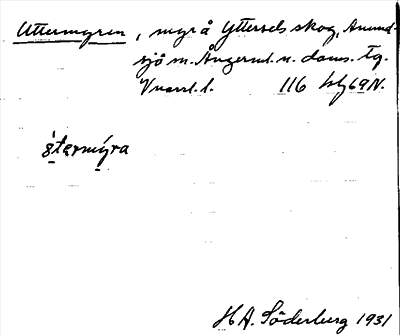 Uttermyren, myr å Ytterselsskog, Anund-
sjö sn. Ångerml. n. doms. Tg.
116 bl 69 N.
ò̤tęrmý̤ra
H A. Söderberg 1931